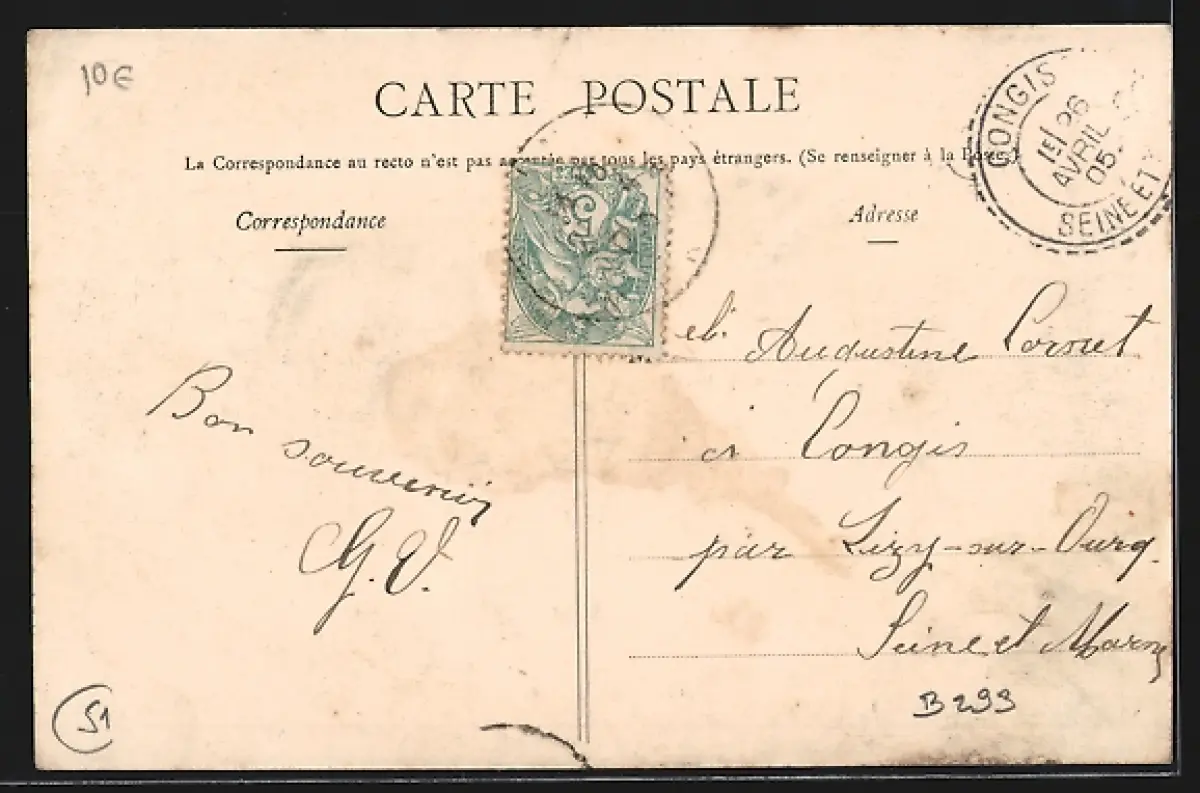 10€
CARTE POSTALE
La Correspondance au recto n'est pas acceptée par tous les pays étrangers. (Se renseigner à la Poste.)
Correspondance
Adresse
CONGIS
1E/ 26
AVRIL
05
SEINE ET
Augustine Cornet
à Congis
par Lizy-sur-Ourq.
Seine et Marne
Bon souvenir
G. V.
51
B299